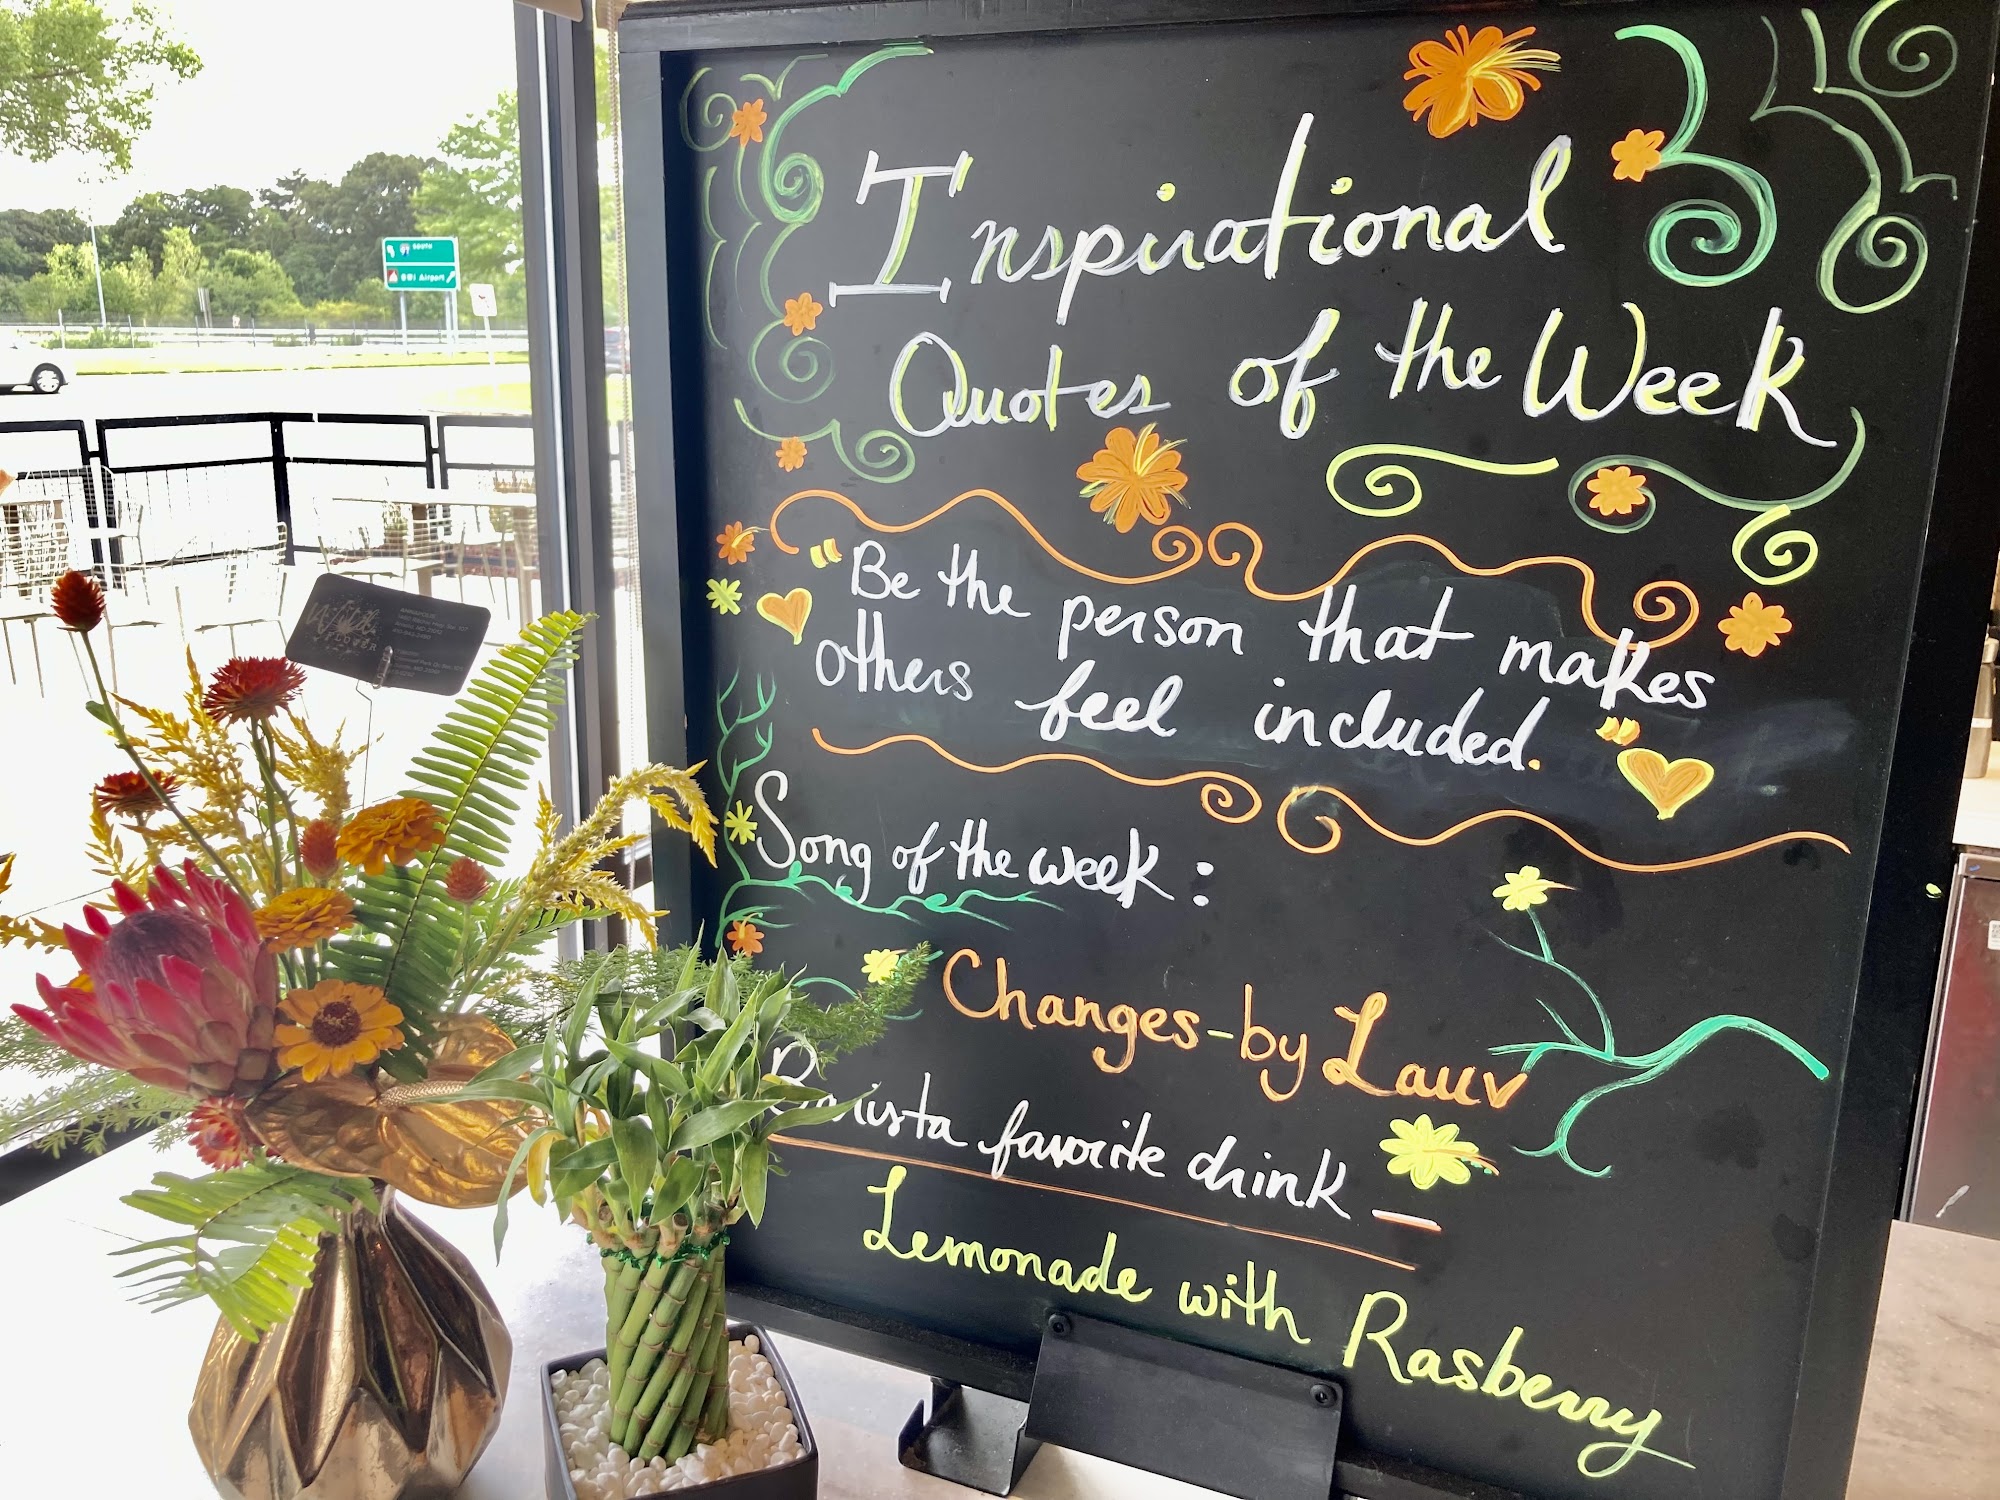 Inspirational
Quotes of the Week
"Be the person that makes
others feel included."
Song of the week:
Changes-by Lauv
Barista favorite drink -
Lemonade with Rasberry
SOUTH
BWI Airport
Wild
FLOWER
ANNAPOLIS